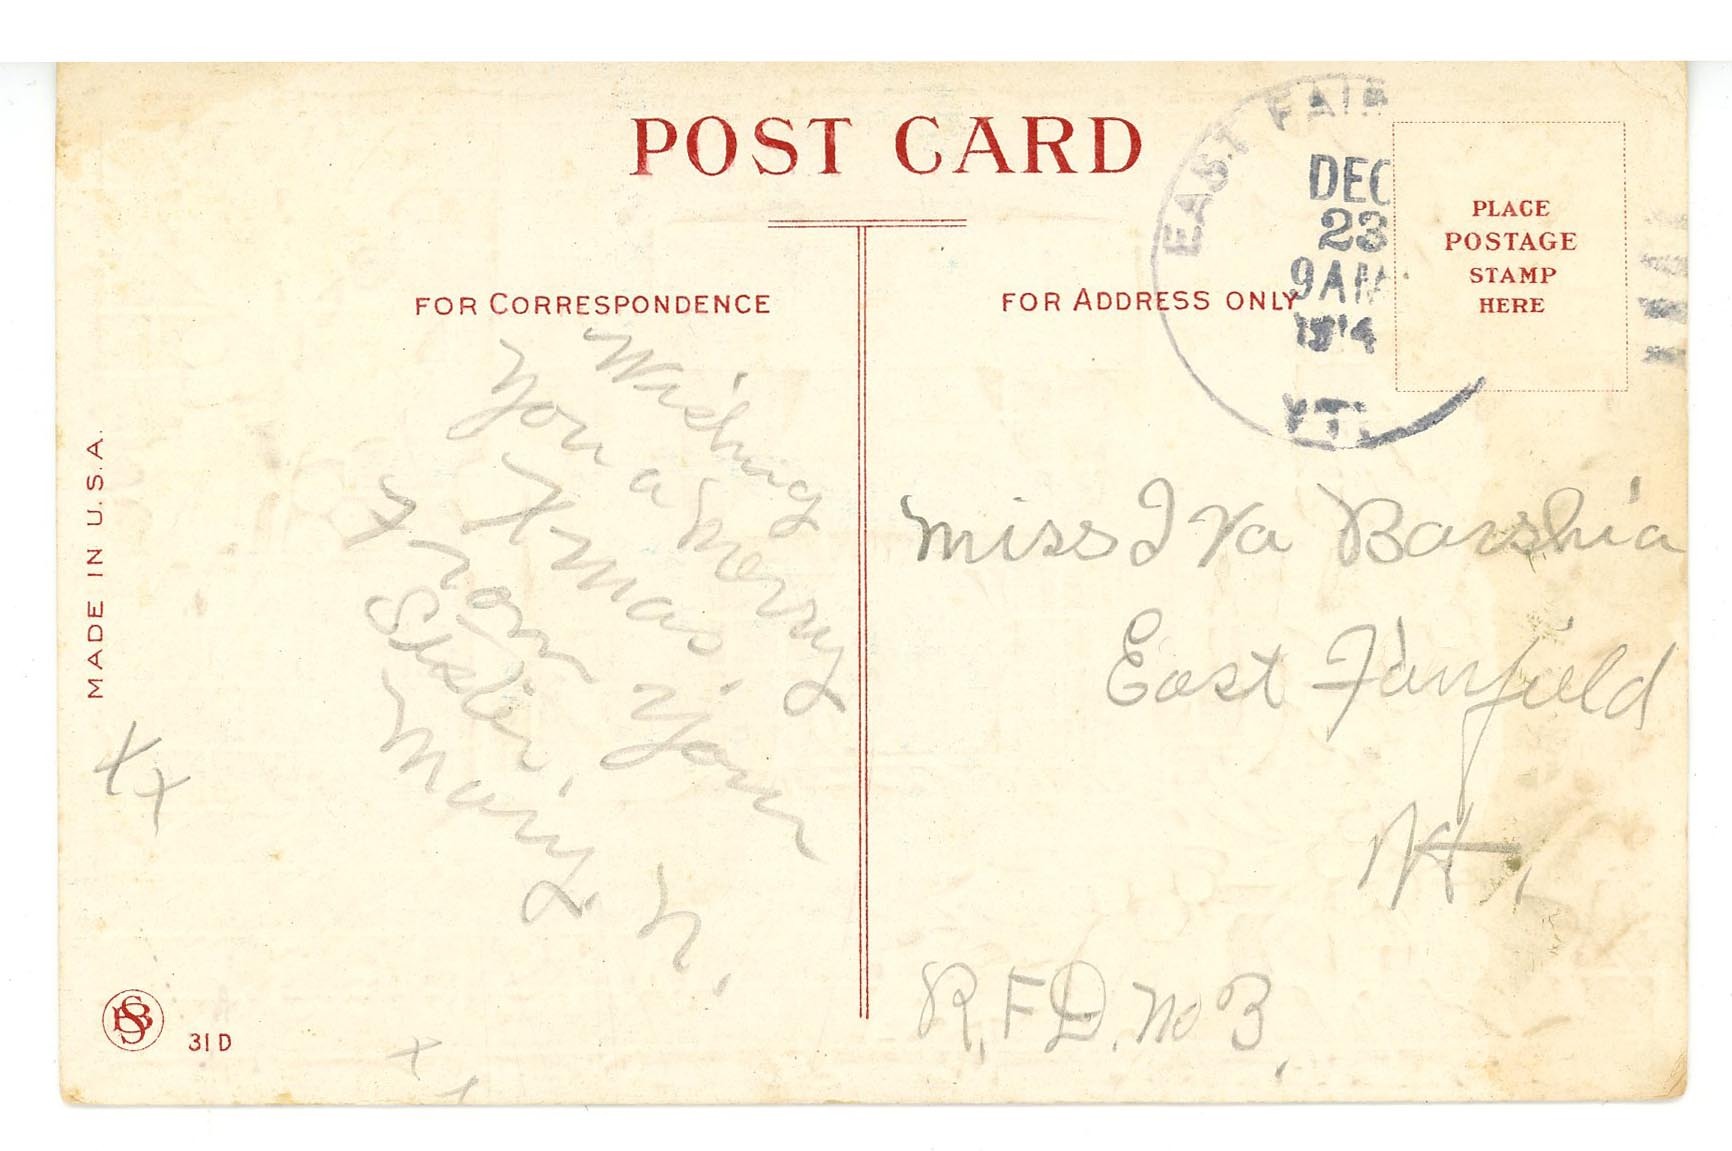 POST CARD
FOR CORRESPONDENCE
FOR ADDRESS ONLY
EAST FAIR
DEC
23
9 AM
1914
VT.
PLACE
POSTAGE
STAMP
HERE
MADE IN U.S.A.
Wishing
you a Merry
Xmas. Your
From
Sister,
Mary. N.
xx
x
Miss Iva Barshia
East Fairfield
Vt.
R.F.D. No 3.
31 D